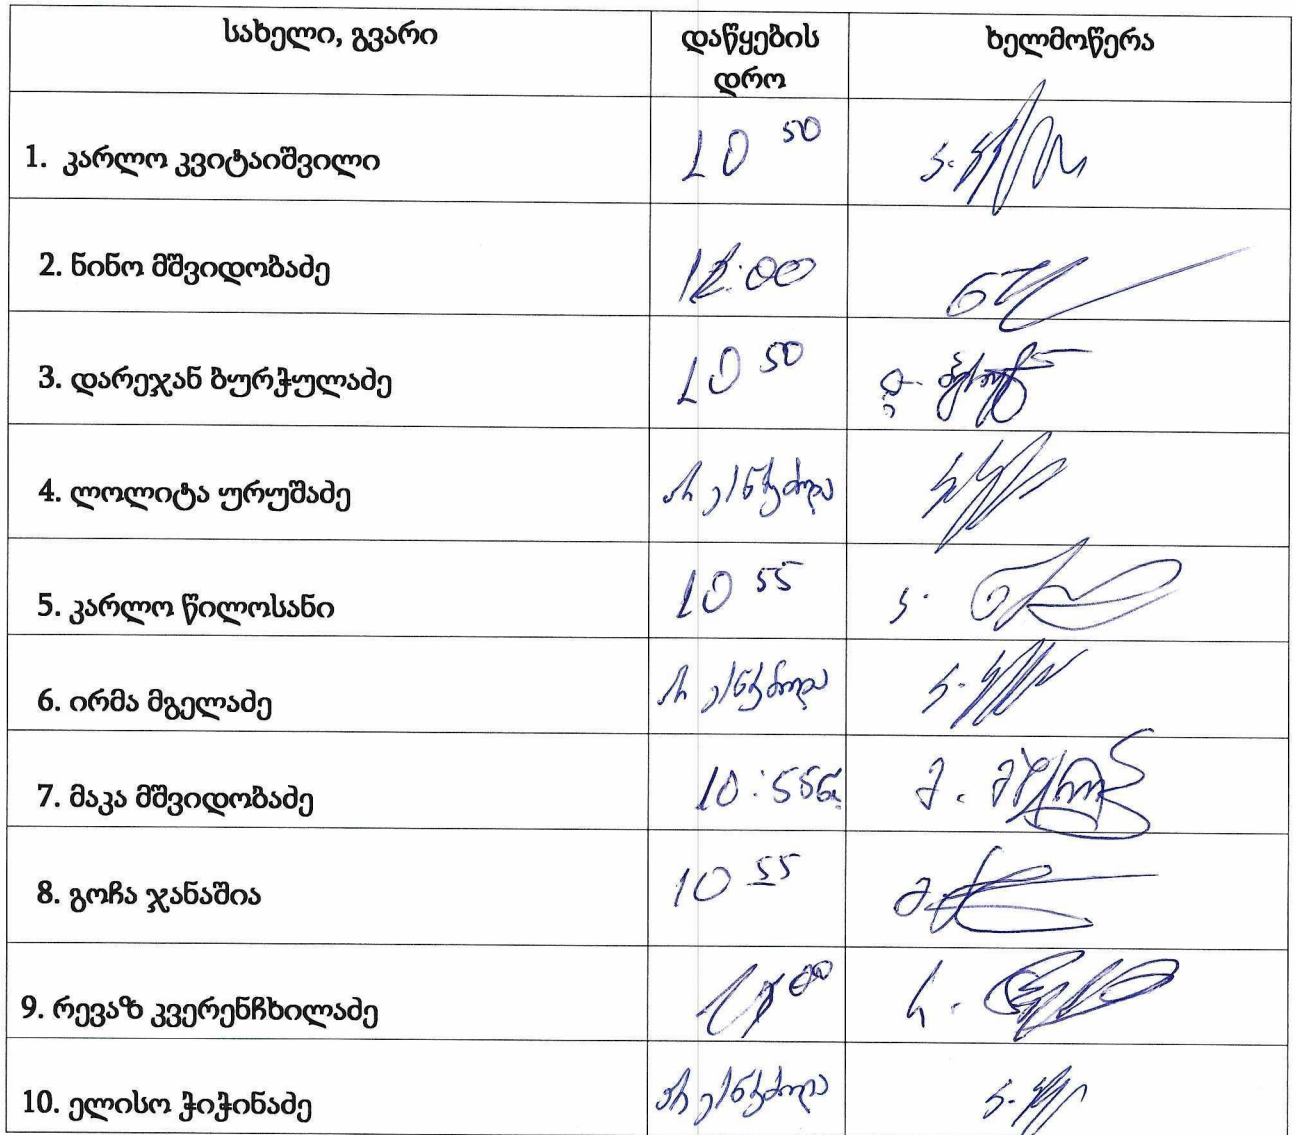 სახელი, გვარი
დაწყების
დრო
ხელმოწერა
1. კარლო კვიტაიშვილი
10 50
2. ნინო მშვიდობაძე
12:00
3. დარეჯან ბურჭულაძე
10 50
4. ლოლიტა ურუშაძე
არ ესწრებოდა
5. კარლო წილოსანი
10 55
6. ირმა მგელაძე
არ ესწრებოდა
7. მაკა მშვიდობაძე
10:55
8. გოჩა ჯანაშია
10 55
9. რევაზ კვერენჩხილაძე
10. ელისო ჭიჭინაძე
არ ესწრებოდა